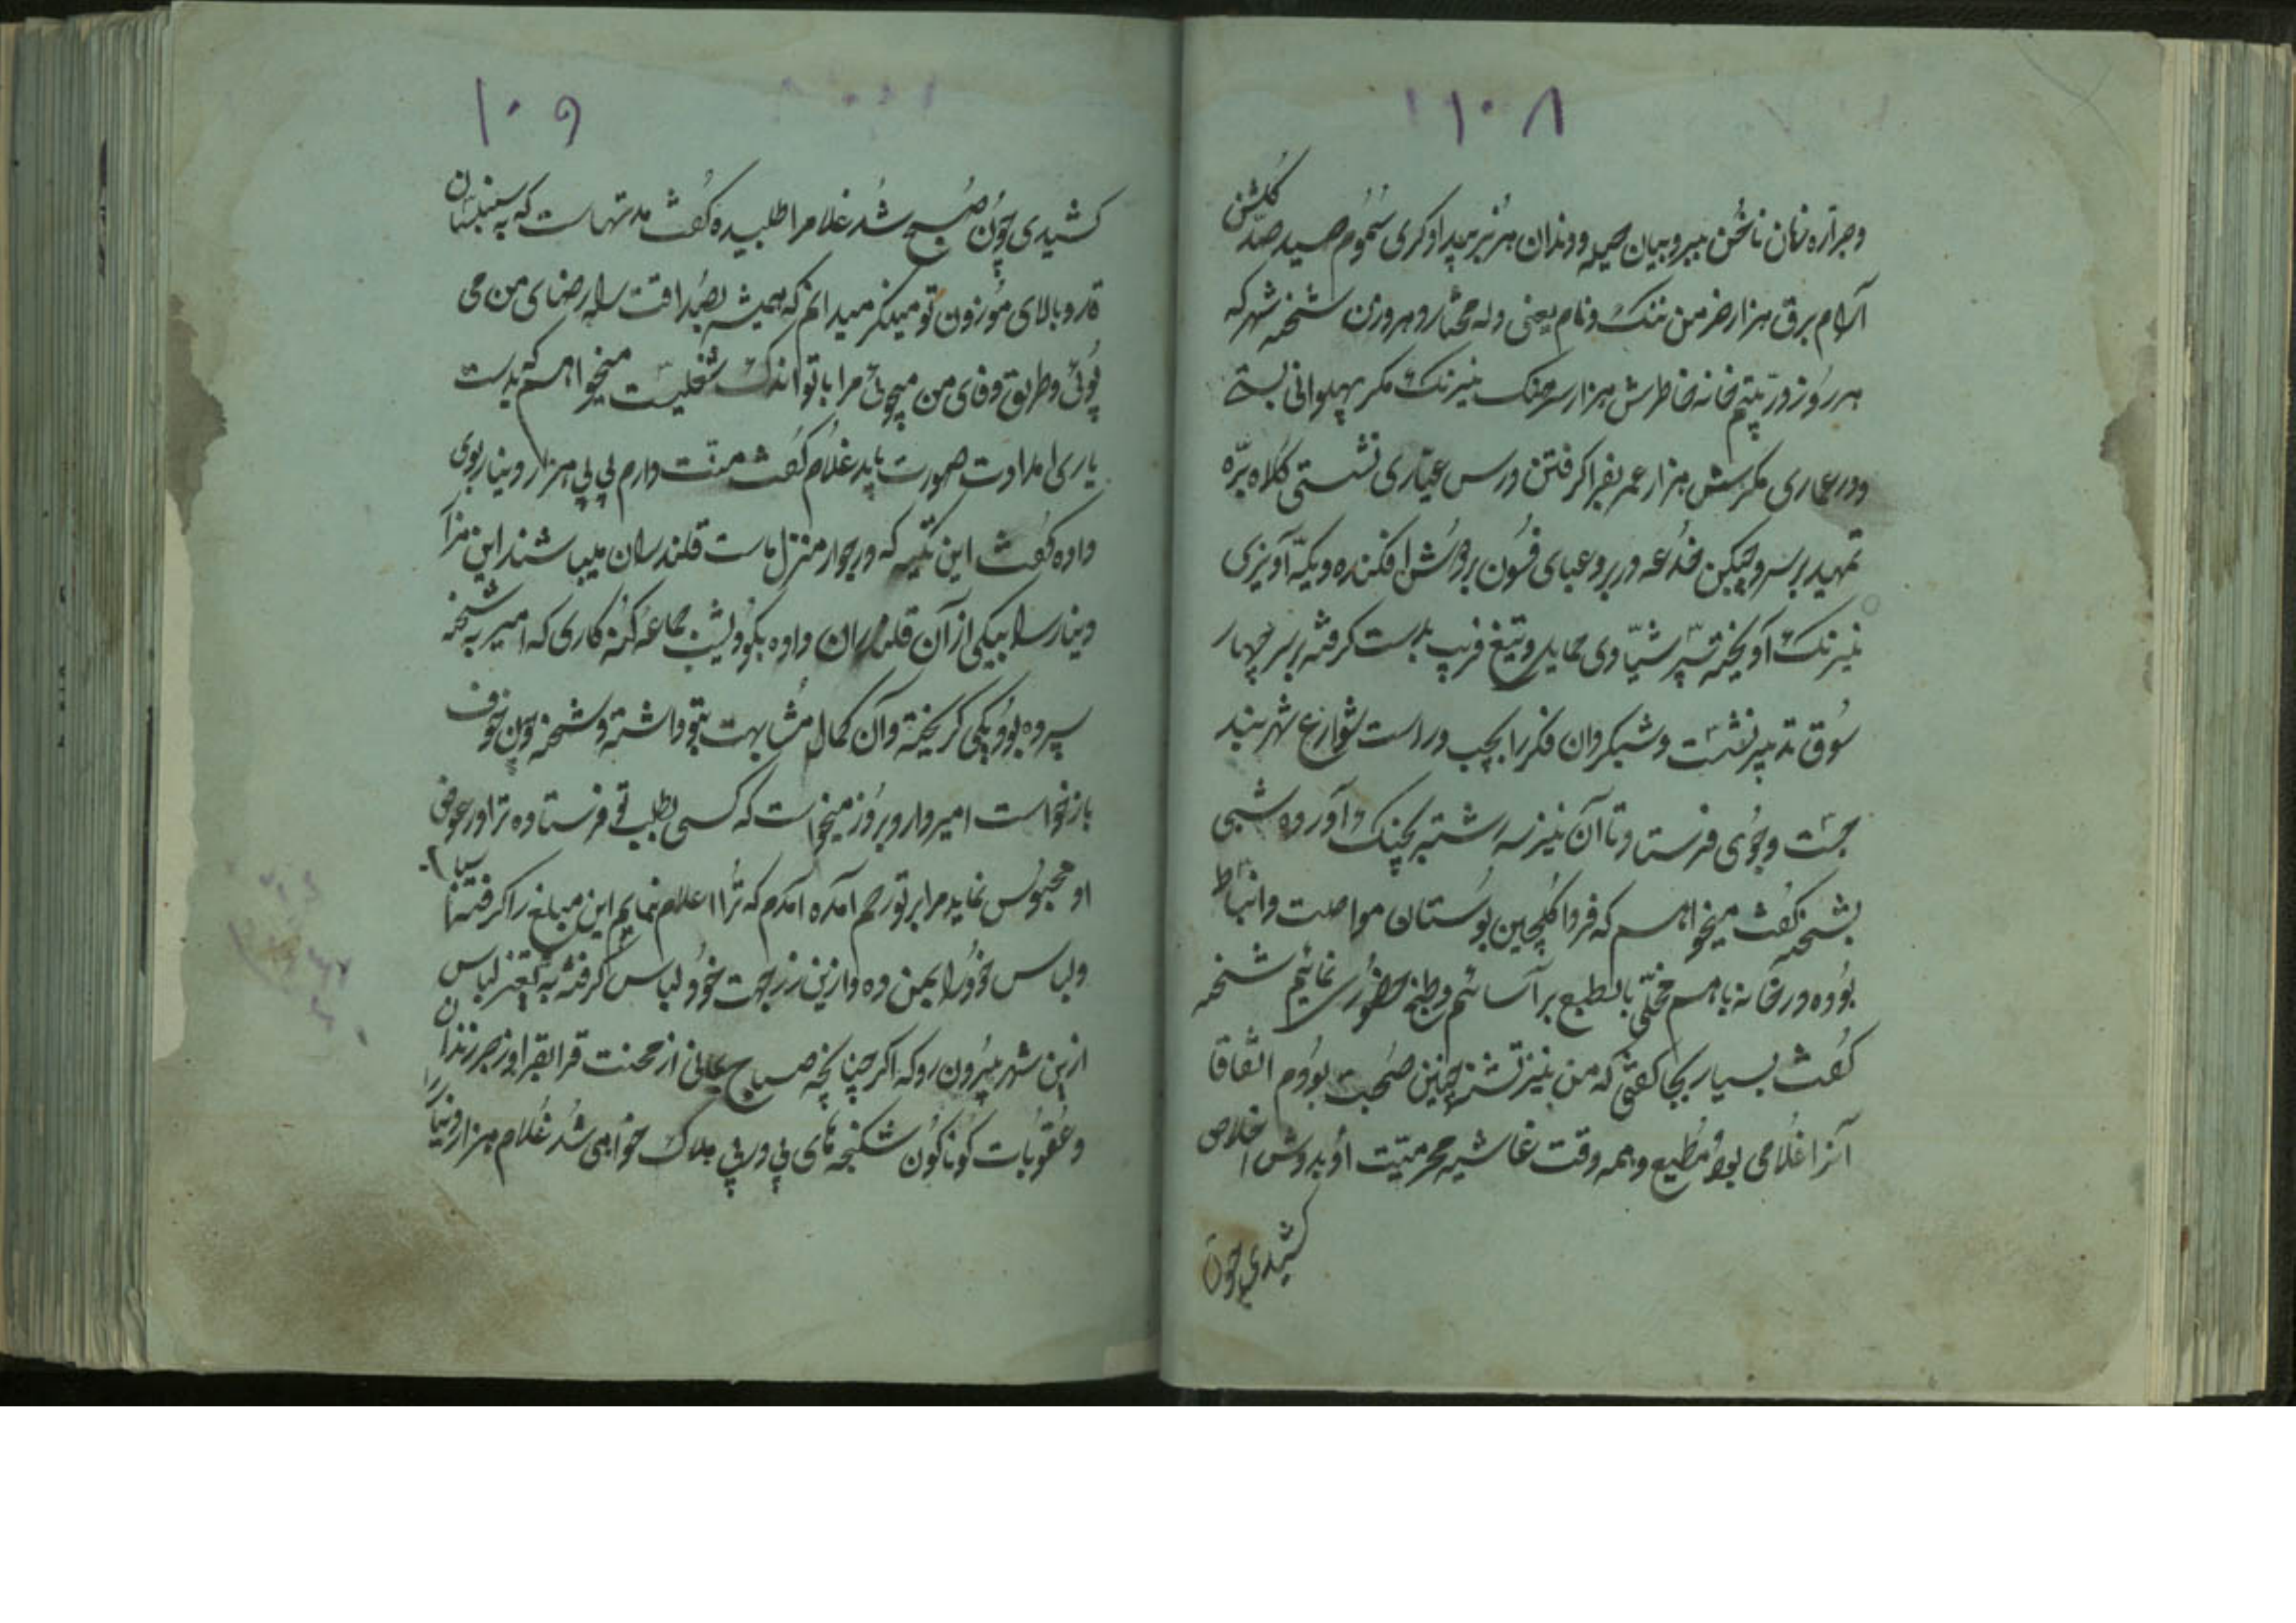 ۱۰۸
وجراره زنان ناخن ببر و بیان حیله و دندان هزبر بیدادکری سموم صید صد کلشن
آرام برق هزار خرمن ننک و نام یعنی دله محتاله و هر و زن شحنه شهر که
هر روز در یتیم خانه خاطرش هزار سرهنک نیرنک مکر پهلوانی بستی
ودر عماری مکرش هزار عمر بفرا کرفتن درس عیاری نشستی کلاه بره
تمهید بر سر و چپکن خدعه در بر و عبای فسون بر دوش افکنده و یکه آویزی
نیرنک آویخته سپر شیادی حمایل و تیغ فریب بدست کرفته بر سر چهار
سوق تدبیر نشست و شبکردان فکر را بچپ و راست شوارع شهر بند
جست و جوی فرستاد تا آن نیز سر رشته بچنک در آورده شبی
بشحنه کفت میخواهم که فردا کلچین بوستان مواصلت و انبساط
بوده در خانه با هم مخلی بالطبع بر آسائیم و طبخ حضوری نمائیم شحنه
کفت بسیار بجا کفتی که من نیز تشنه چنین صحبت بودم اتفاقا
آنرا غلامی بود مطیع و همه وقت غاشیه محرمیت او بدوش اخلاص
کشیدی چون
۱۰۹
کشیدی چون صبح شد غلام را طلبیده کفت مدتهاست که به سنبلستان
قد و بالای موزون تو مینکرم میدانم که همیشه بصداقت راه رضای من می
پوئی و طریق وفای من میجوئی مرا با تو اندک شغلیست میخواهم که بدست
یاری امدادت صورت یابد غلام کفت منت دارم بی بی هزار دینار بوی
داده کفت این تکیه که در جوار منزل ماست قلندران میباشند این هزار
دینار را بیکی از آن قلندران داده بکو دیشب جماعه کنه کاری که امیر به شحنه
سپرده بود یکی کریخته و آن کمال مشابهت بتو داشته و شحنه چون خوف
بازخواست امیر دارد امروز میخواست که کسی بطلب تو فرستاده ترا در عوض
او محبوس نماید مرا بر تو رحم آمده آمدم که ترا اعلام نمایم این مبلغ را کرفته
ولباس خود را بمن ده و ازین زر جهت خود لباس کرفته به تغییر لباس
ازین شهر بیرون رو که اکر چنانچه صباح بمانی از محنت قرابقرا و زجر زندان
و عقوبات کوناکون شکنجه های پی در پی هلاک خواهی شد غلام هزار دینار را